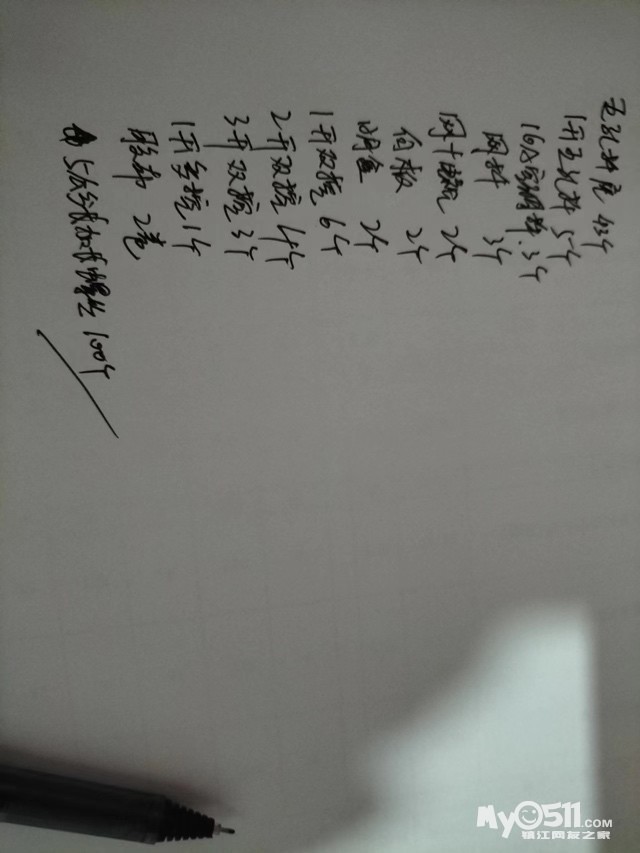 五孔插座 43个
1开五孔插 5个
16A空调插 3个
网插 3个
网+电视 2个
白板 2个
明盒 2个
1开双控 6个
2开双控 4个
3开双控 3个
1开多控 1个
胶布 2卷
5公分长加长螺丝 100个
My0511.com
镇江网友之家